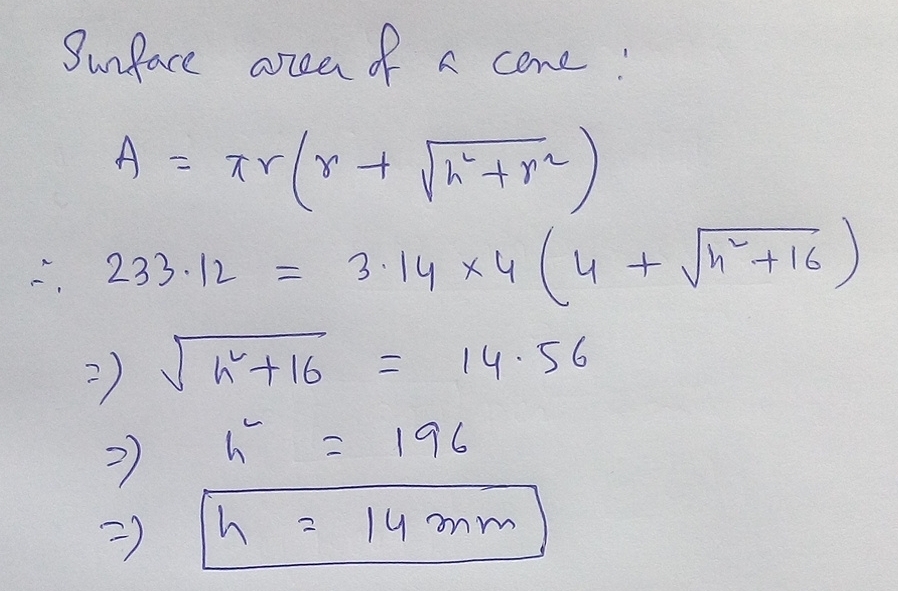 Surface area of a cone :
A = πr(r + √(h²+r²))
∴ 233.12 = 3.14 × 4 (4 + √(h²+16))
⇒ √(h²+16) = 14.56
⇒ h² = 196
⇒ h = 14 mm